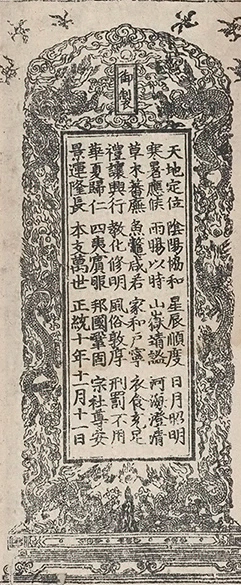 御製
天地定位 陰陽協和 星辰順度 日月照明
寒暑應候 雨暘以時 山嶽靖謐 河海澄清
草木蕃廡 魚鼈咸若 家和戶寧 衣食充足
禮讓興行 教化修明 風俗敦厚 刑罰不用
華夏歸仁 四夷賓服 邦國鞏固 宗社尊安
景運隆長 本支萬世 正統十年十一月十一日